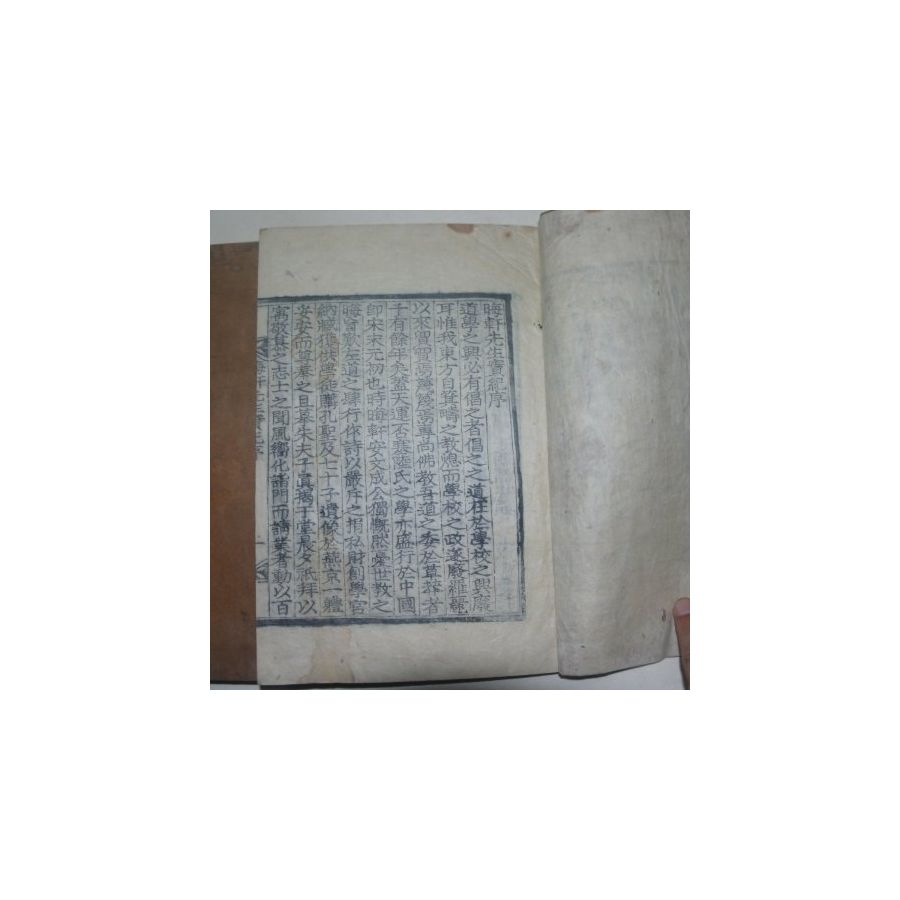 晦軒先生實紀序
道學之興必有倡之者倡之之道在於學校之興廢
耳惟我東方自箕疇之教熄而學校之政遂廢羅麗
以來貿貿焉蔑蔑焉專尚佛教吾道之委於草莽者
千有餘年矣蓋天運否塞陸氏之學亦盛行於中國
即宋末元初也時晦軒安文成公獨慨然憂世教之
晦盲歎左道之肆行作詩以嚴斥之捐私財創學宮
納臧獲俱典籍購孔聖及七十子遺像於燕京一軆
妥安而尊慕之且慕朱夫子眞揭于堂晨夕祇拜以
寓敬慕之志士之聞風嚮化請門而請業者動以百